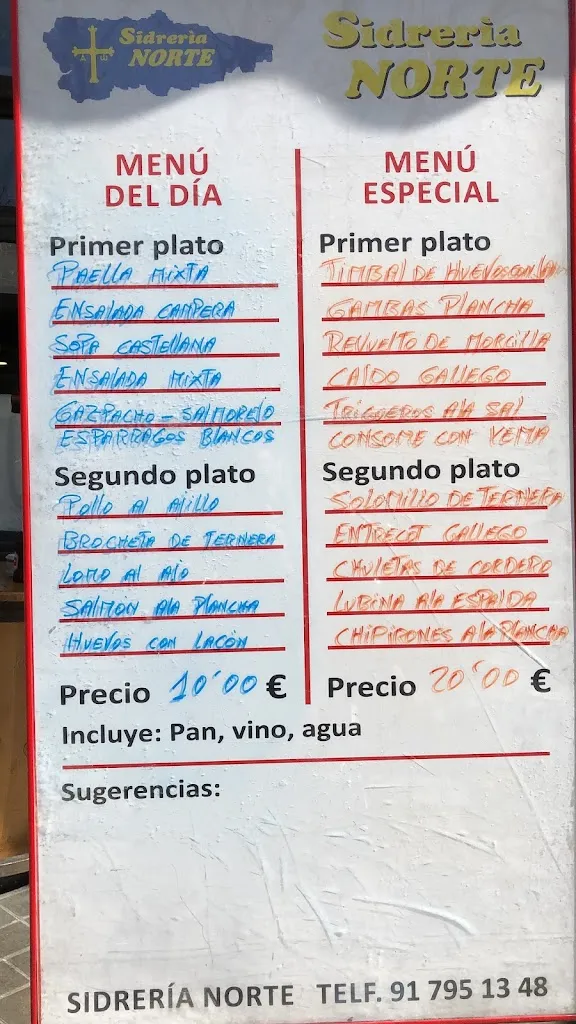 Sidrería
NORTE
Sidrería
NORTE
MENÚ
DEL DÍA
Primer plato
PAELLA MIXTA
ENSALADA CAMPERA
SOPA CASTELLANA
ENSALADA MIXTA
GAZPACHO - SALMOREJO
ESPARRAGOS BLANCOS
Segundo plato
Pollo Al AJILLO
BROCHETA DE TERNERA
LOMO Al AJO
SALMON Ala PLANCHA
HUEVOS CON LACÓN
Precio 10'00 €
MENÚ
ESPECIAL
Primer plato
TIMBAl DE HUEVOS CON
GAMBAS PLANCHA
REVUELTO DE MORCILLA
CALDO GALLEGO
TRIGUEROS Ala SAL
CONSOME CON YEMA
Segundo plato
SOLOMILLO DE TERNERA
ENTRECOT GALLEGO
CHULETAS DE CORDERO
LUBINA Ala ESPALDA
CHIPIRONES Ala PLANCHA
Precio 20'00 €
Incluye: Pan, vino, agua
Sugerencias:
SIDRERÍA NORTE TELF. 91 795 13 48